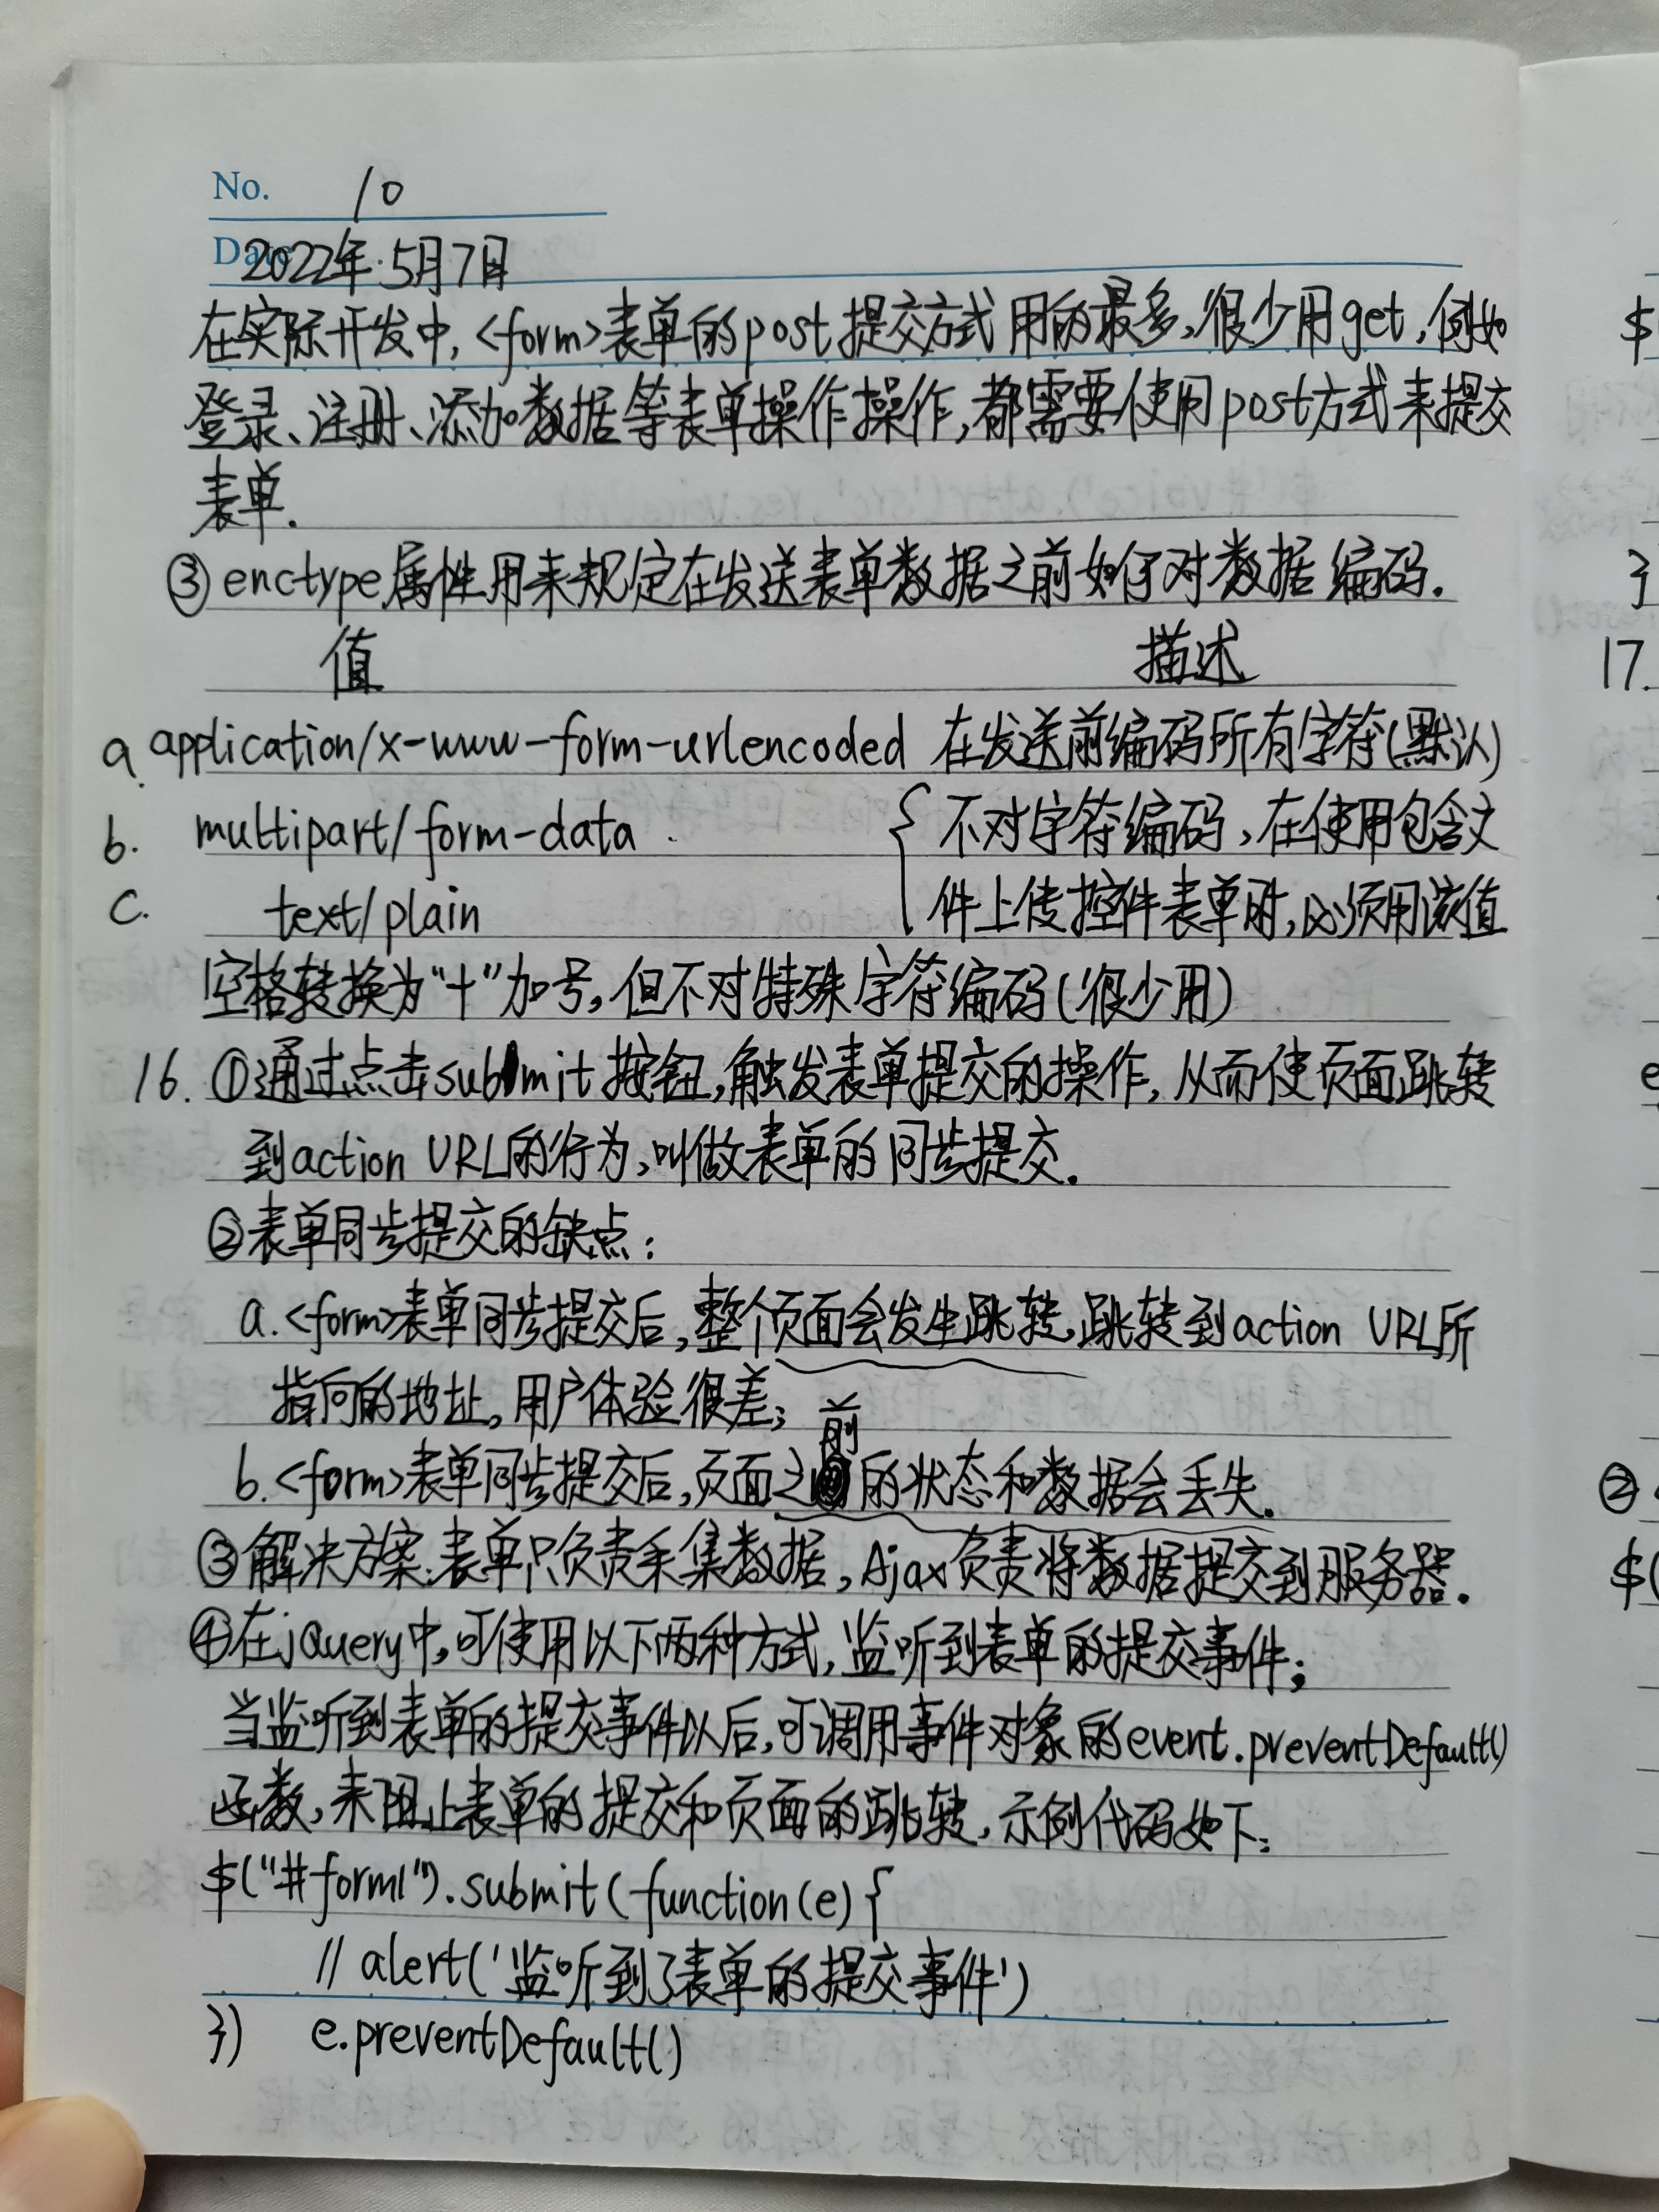 No. 10
Date 2022年5月7日
在实际开发中,<form>表单的post提交方式用的最多,很少用get,例如
登录、注册、添加数据等表单操作操作,都需要使用post方式来提交
表单.
③enctype属性用来规定在发送表单数据之前如何对数据编码.
值 描述
a. application/x-www-form-urlencoded 在发送前编码所有字符(默认)
b. multipart/form-data { 不对字符编码,在使用包含文
c. text/plain 件上传控件表单时,必须用该值
空格转换为“+”加号,但不对特殊字符编码(很少用)
16. ①通过点击submit按钮,触发表单提交的操作,从而使页面跳转
到action URL的行为,叫做表单的同步提交.
②表单同步提交的缺点:
a.<form>表单同步提交后,整个页面会发生跳转,跳转到action URL所
指向的地址,用户体验很差;
b.<form>表单同步提交后,页面之前的状态和数据会丢失.
③解决方案:表单只负责采集数据,Ajax负责将数据提交到服务器.
④在jQuery中,可使用以下两种方式,监听到表单的提交事件;
当监听到表单的提交事件以后,可调用事件对象的event.preventDefault()
函数,来阻止表单的提交和页面的跳转,示例代码如下:
$("#form1").submit(function(e){
// alert('监听到了表单的提交事件')
}) e.preventDefault()
$
}
17.
e
②
$(